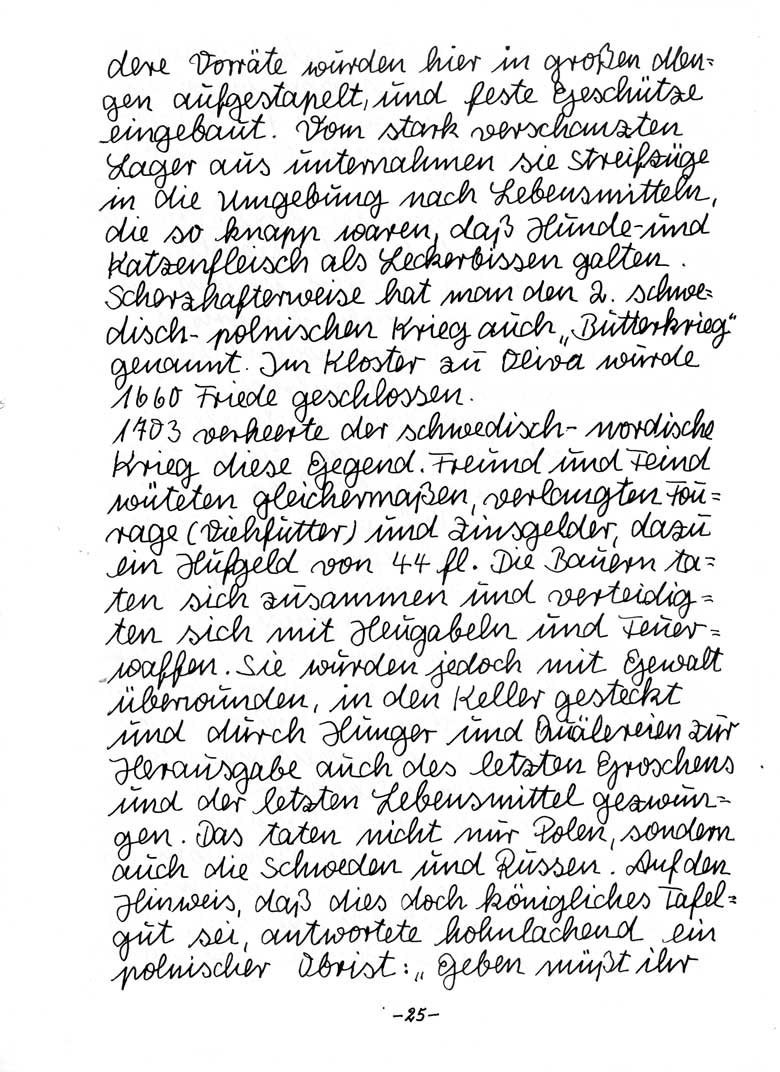 dere Vorräte wurden hier in großen Men=
gen aufgestapelt, und feste Geschütze
eingebaut. Vom stark verschanzten
Lager aus unternahmen sie Streifzüge
in die Umgebung nach Lebensmitteln,
die so knapp waren, daß Hunde- und
Katzenfleisch als Leckerbissen galten.
Scherzhafterweise hat man den 2. schwe=
disch-polnischen Krieg auch „Butterkrieg"
genannt. Im Kloster zu Oliva wurde
1660 Friede geschlossen.
1703 verheerte der schwedisch-nordische
Krieg diese Gegend. Freund und Feind
wüteten gleichermaßen, verlangten Fou=
rage (Viehfutter) und Zinsgelder, dazu
ein Hufgeld von 44 fl. Die Bauern ta=
ten sich zusammen und verteidig=
ten sich mit Heugabeln und Feuer=
waffen. Sie wurden jedoch mit Gewalt
überwunden, in den Keller gesteckt
und durch Hunger und Quälereien zur
Herausgabe auch des letzten Groschens
und der letzten Lebensmittel gezwun=
gen. Das taten nicht nur Polen, sondern
auch die Schweden und Russen. Auf den
Hinweis, daß dies doch königliches Tafel=
gut sei, antwortete hohnlachend ein
polnischer Obrist: „Geben müßt ihr
-25-